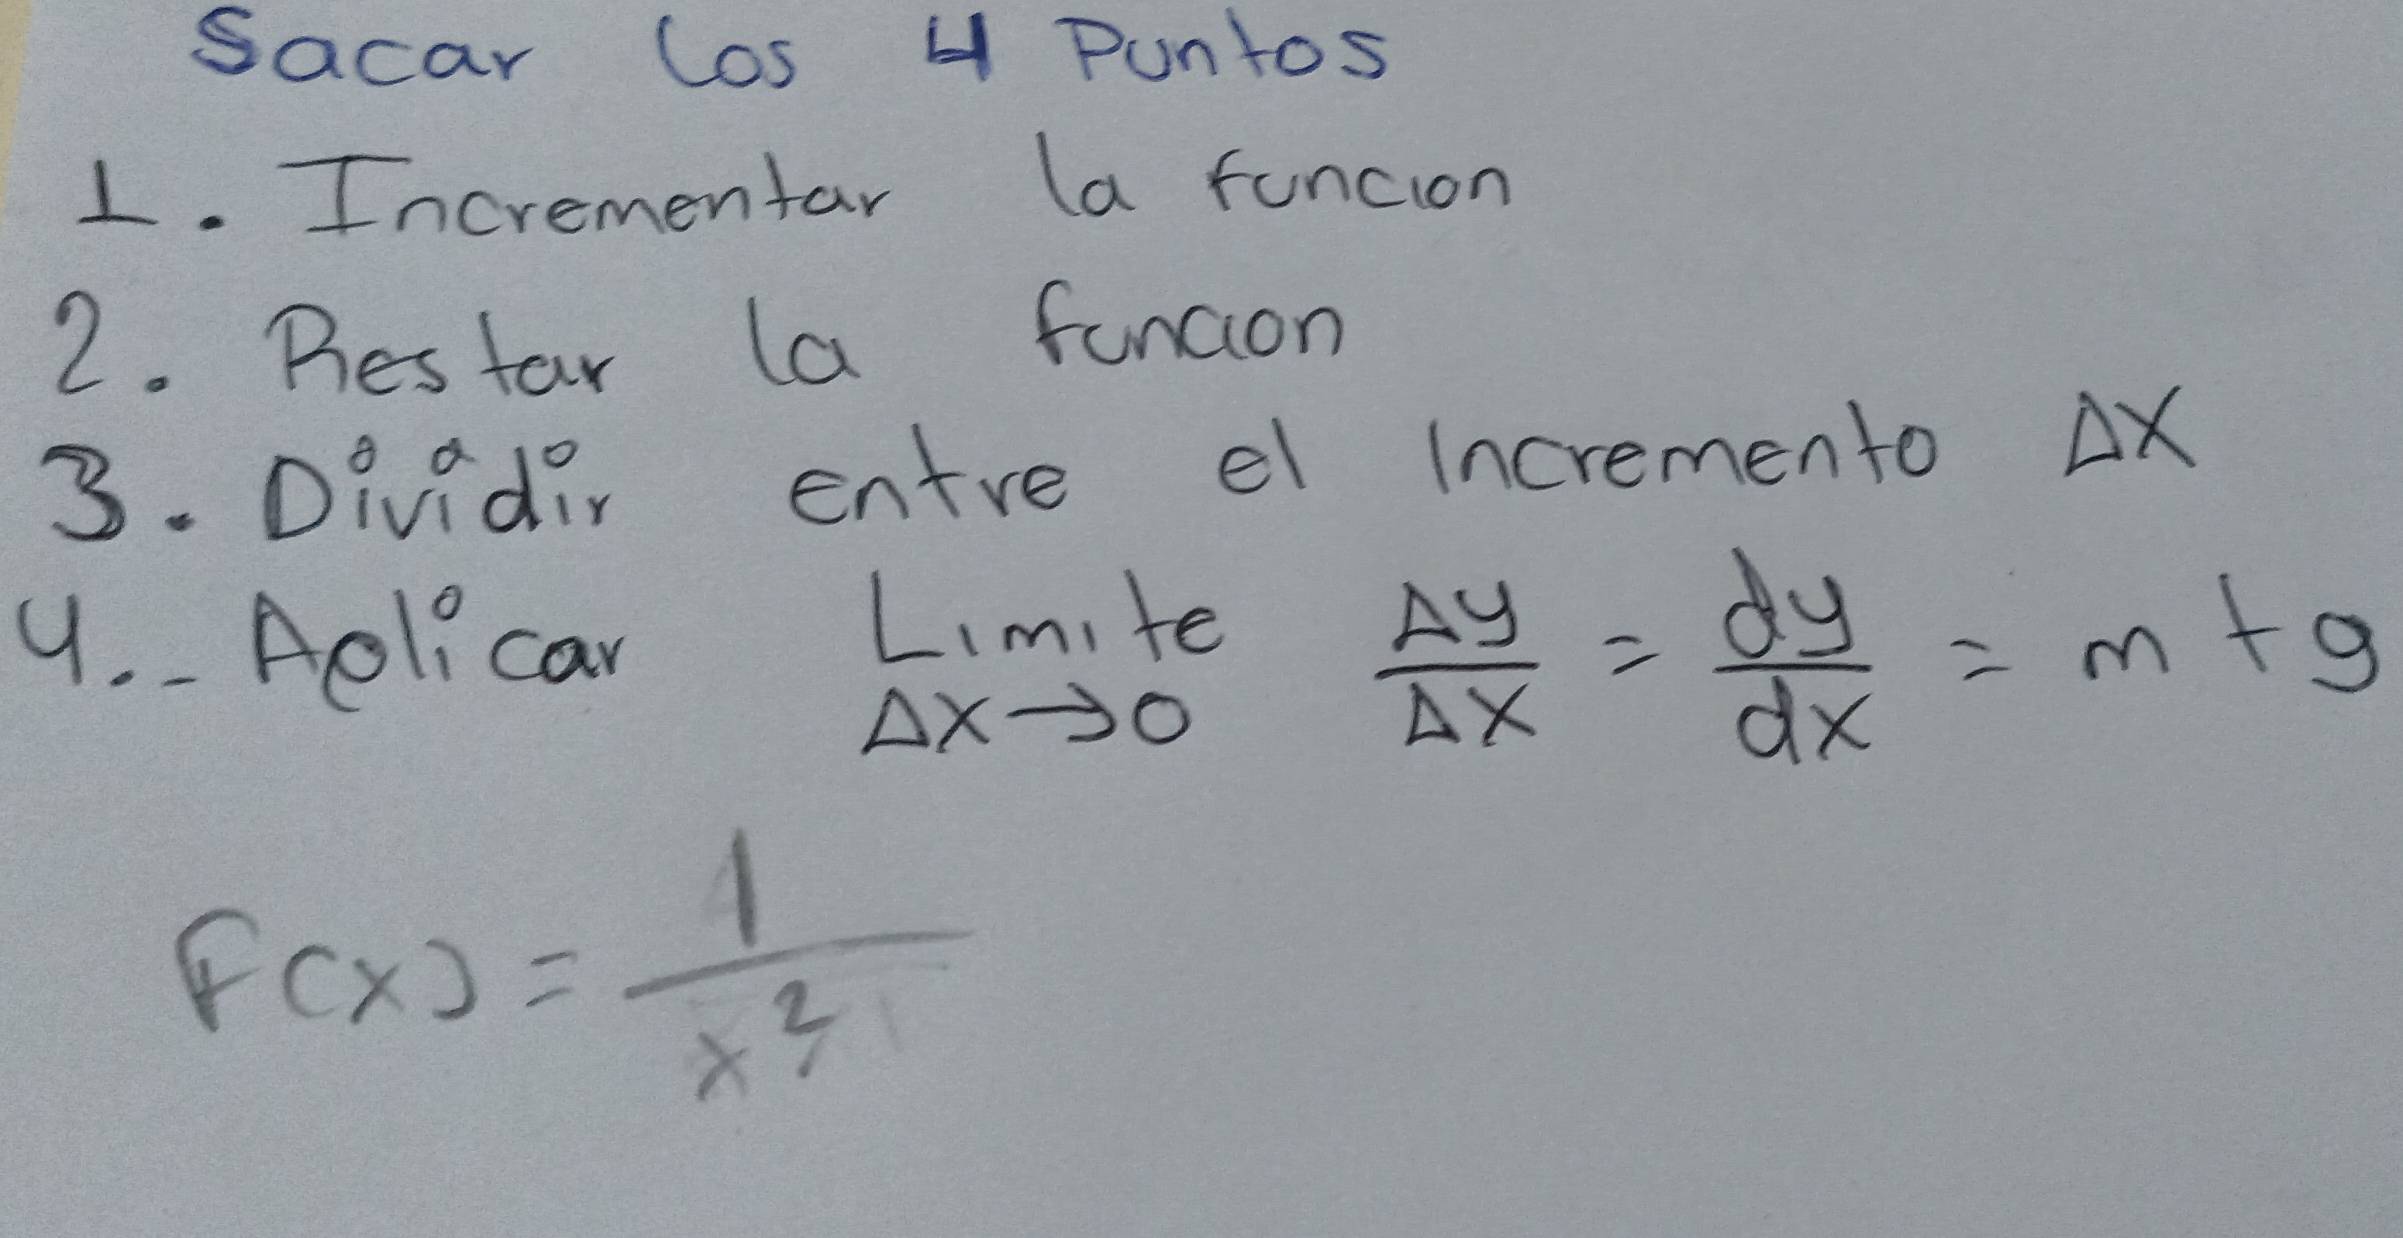 Sacar los 4 Puntos
1. Incrementar la funcion
2. Restar la funcion
3. Dividir entre el Incremento ΔX
4.- Aplicar Limite Δy/ΔX = dy/dx = m tg
ΔX→0
F(x) = 1/x²